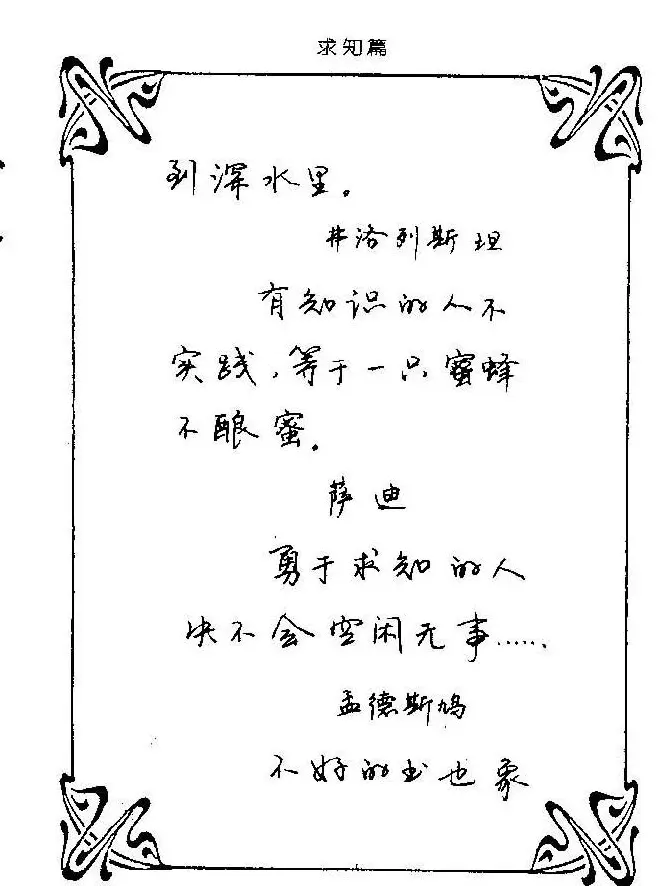 求知篇
到深水里。
弗洛列斯坦
有知识的人不
实践，等于一只蜜蜂
不酿蜜。
萨迪
勇于求知的人
决不会空闲无事……
孟德斯鸠
不好的书也象